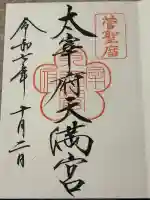 菅聖廟
太宰府天満宮
令和六年 十月二日